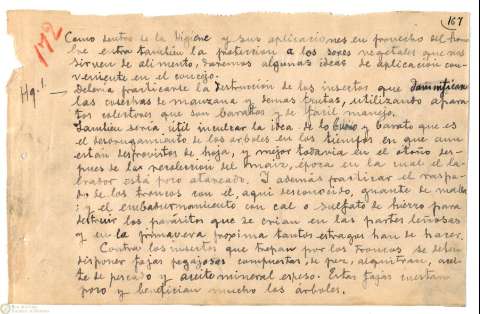 167
172
Como dentro de la Higiene y sus aplicaciones en provecho del hom-
bre entra tambien la proteccion a los seres vegetales que nos
sirven de alimento, daremos algunas ideas de aplicación con-
veniente en el concejo.
Hg.1
Deberia practicarse la destrucción de los insectos que damnifican
las cosechas de manzana y demas frutas, utilizando apara-
tos colectores que son baratos y de facil manejo.
Tambien seria útil inculcar la idea de lo bueno y barato que es
el desmusgamiento de los arboles en los tiempos en que aun
están desprovistos de hoja, o mejor todavia en el otoño des-
pues de la recoleccion del maiz, época en la cual el la-
brador está poco atareado. Y además practicar el raspa-
do de los troncos con el, aqui desconocido, guante de malla
y el embadurnamiento con cal o sulfato de hierro para
destruir los parásitos que se crian en las partes leñosas
y en la primavera proxima tantos estragos han de hacer.
Contra los insectos que trepan por los troncos se deben
disponer fajas pegajosas compuestas, de pez, alquitran, acei-
te de pescado y aceite mineral espeso. Estas fajas cuestan
poco y benefician mucho los árboles.